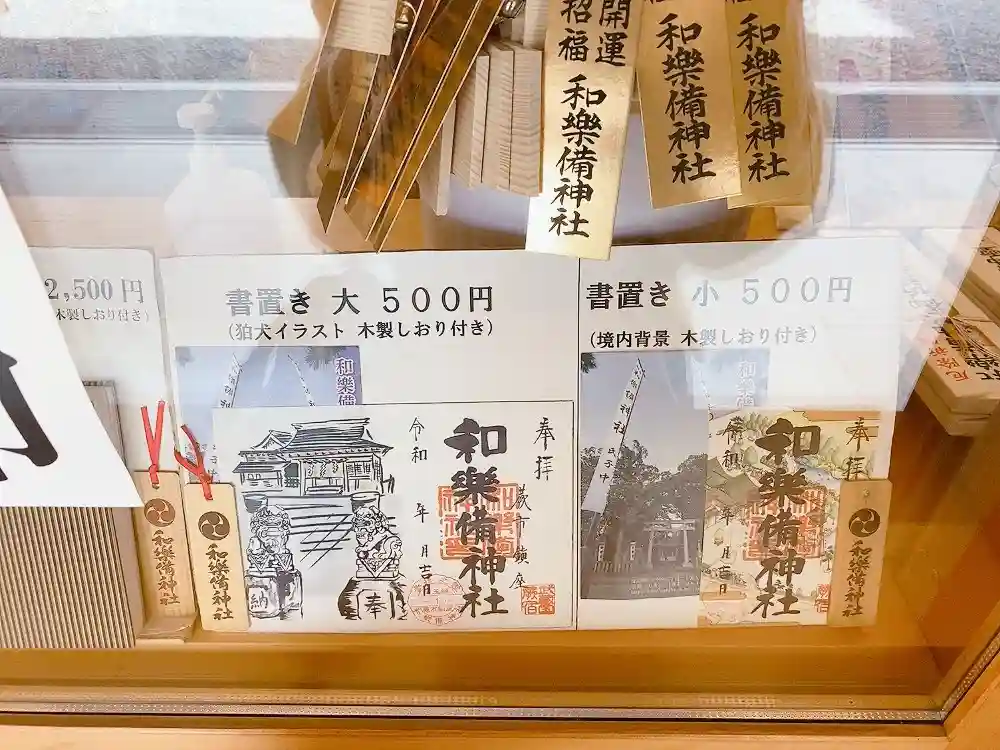 開運
招福
和樂備神社
和樂備神社
和樂備神社
2,500円
木製しおり付き)
書置き 大 500円
(狛犬イラスト 木製しおり付き)
書置き 小 500円
(境内背景 木製しおり付き)
和樂備
奉拝
蕨市鎮座
和樂備神社
令和 年 月吉日
奉
納
和樂備神社
和樂備神社
奉拝
和樂備神社
令和 年 月吉日
和樂備神社